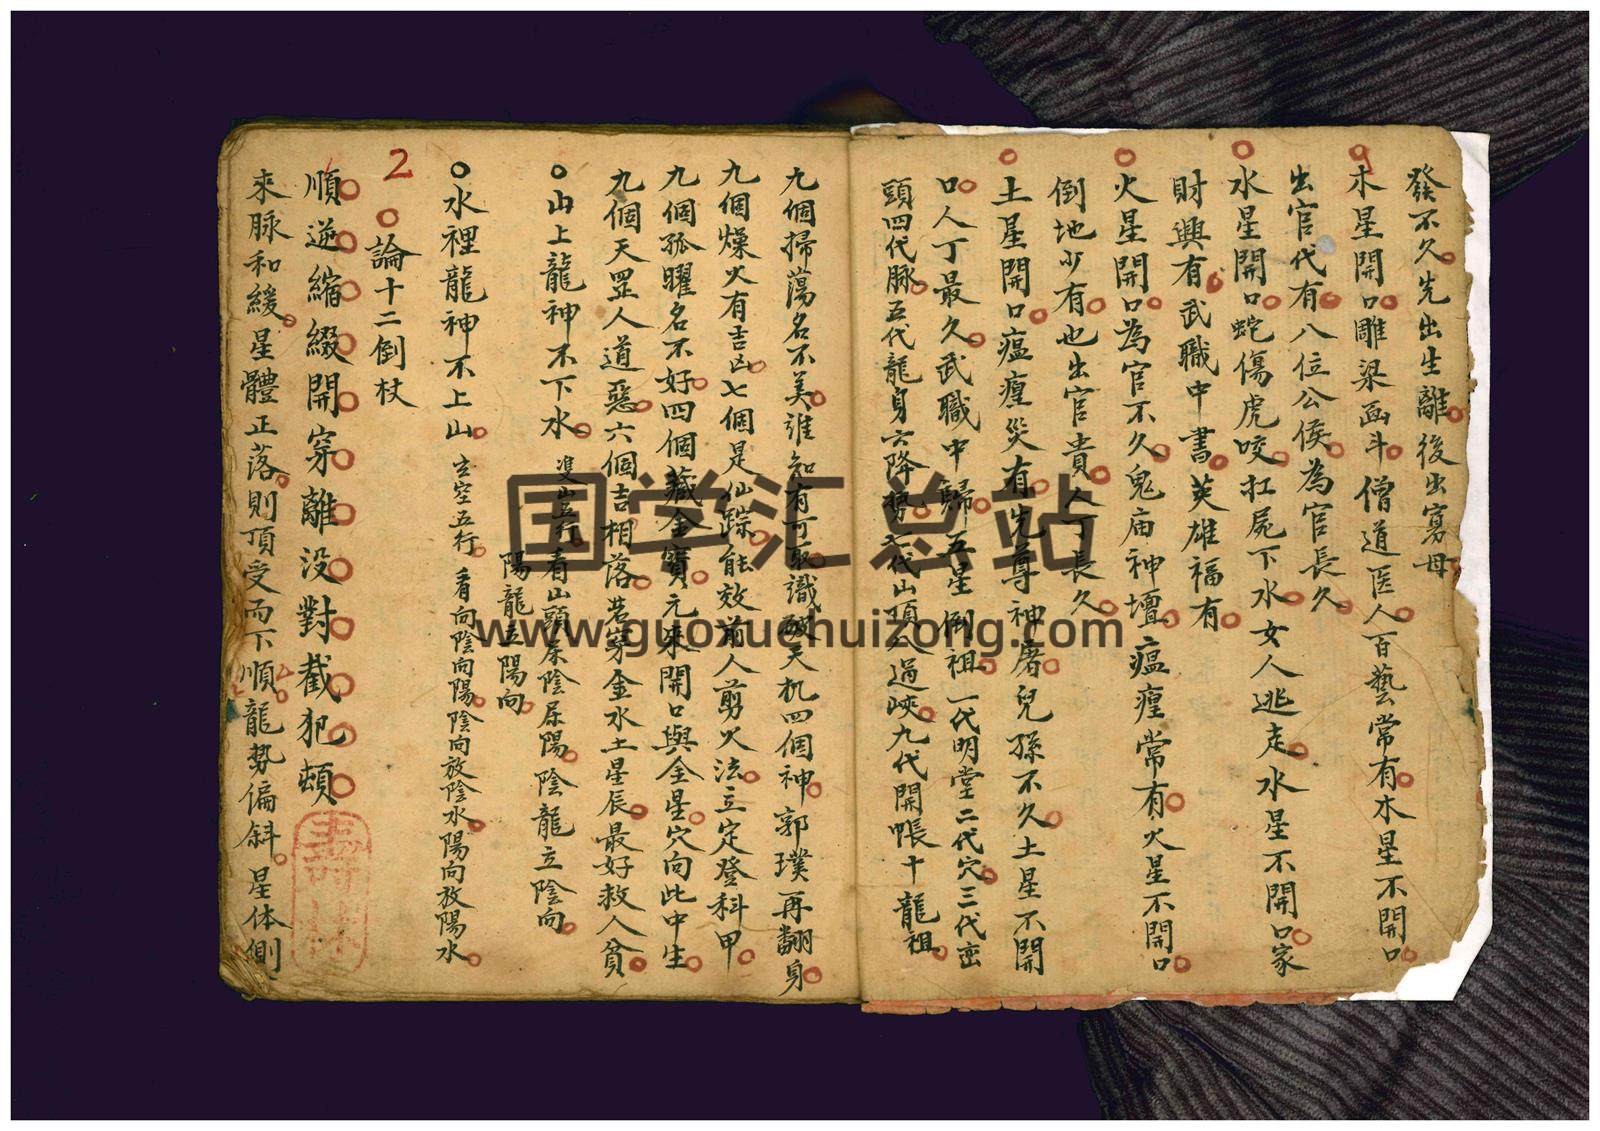 發不久先出生離後出寡母
木星開口雕梁画斗僧道医人百藝常有木星不開口
出官代有八位公侯為官長久
水星開口蛇傷虎咬扛屍下水女人逃走水星不開口家
財興有武職中書英雄福有
火星開口為官不久鬼庙神壇瘟瘽常有火星不開口
倒地少有也出官貴人丁長久
土星開口瘟瘽災有先尊神屠兒孫不久土星不開
口人丁最久武職中歸五星倒祖一代明堂二代穴三代峦
頭四代脉五代龍身六降勢七代山頂八過峽九代開帳十龍祖
九個掃蕩名不美誰知有可取識破天机四個神郭璞再翻身
九個燥火有吉凶七個是仙踪能效前人剪火法立定登科甲
九個孤曜名不好四個藏金寶元來開口與金星穴向此中生
九個天罡人道惡六個吉相落若穿金水土星辰最好救人貧
山上龍神不下水 雙山五行 看山頭尿陰尿陽陰龍立陰向
陽龍立陽向
水裡龍神不上山 玄空五行 看向陰向陽陰向放陰水陽向放陽水
2 論十二倒杖
順逆縮綴開穿離没對截犯頓
來脉和緩星體正落則頂受而下順龍勢偏斜星体側
国学汇总站
www.guoxuehuizong.com